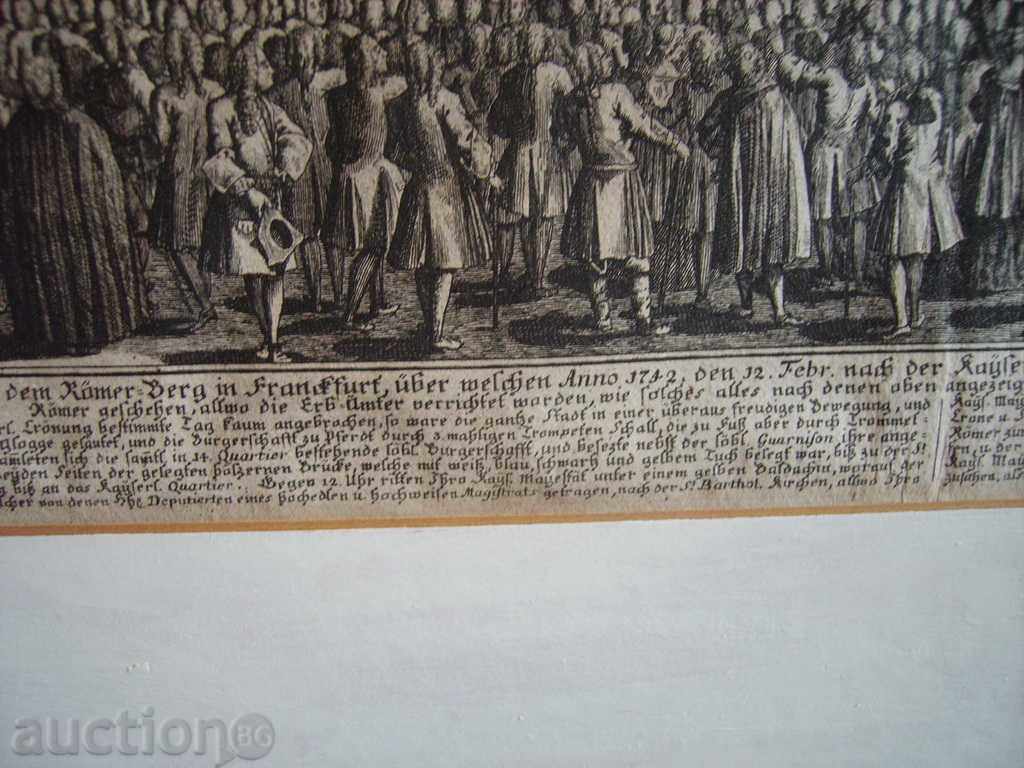 dem Römer-Berg in Franckfurt, über welchen Anno 1742, den 12. Febr. nach der Kaÿse
Römer geschehen, allwo die Erb-Ämter verrichtet worden, wie solches alles nach denen oben angezeig
rl. Crönung bestimmte Tag kaum angebrochen, so ware die gantze Stadt in einer überaus freudigen Bewegung, und Kaÿs. Maÿ
logge geläutet, und die Bürgerschafft zu Pferdt durch 3. mahligen Trompeten Schall, die zu Fuß aber durch Trommel- Crone u.
amleten sich die sämtl. in 14. Quartier bestehende löbl. Bürgerschafft, und besezte nebst der löbl. Guarnison ihre ange- Römer zu
eyden Seiten der gelegten höltzernen Brücke, welche mit weiß, blau, schwartz und gelbem Tuch belegt war, biß zu der St. en, u. der
g biß an das Kaÿserl. Quartier. Gegen 12. Uhr ritten Ihro Kaÿs. Majestät unter einem gelben Baldachin, woran der Kaÿs. Maÿ
cher von denen Deputierten eines hochedlen u. hochweisen Magistrats getragen, nach der St. Barthol. Kirchen, allwo Ihro zusehen, als
auctionBG